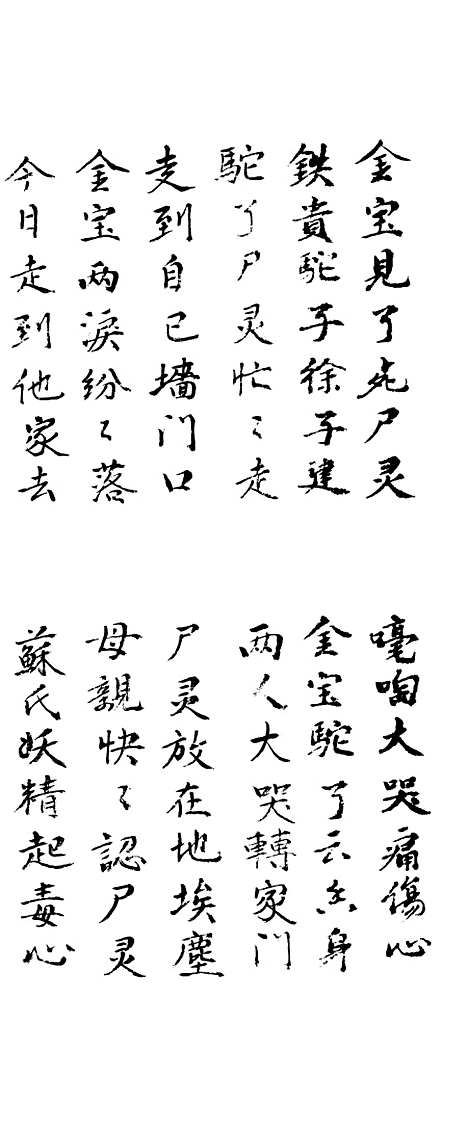 金宝見了死尸灵 嚎啕大哭痛傷心
鉄貴駝子徐子建 金宝駝了云身
駝了尸灵忙〻走 两人大哭轉家门
走到自己墻门口 尸灵放在地埃塵
金宝两淚纷〻落 母親快〻認尸灵
今日走到他家去 蘇氏妖精起毒心